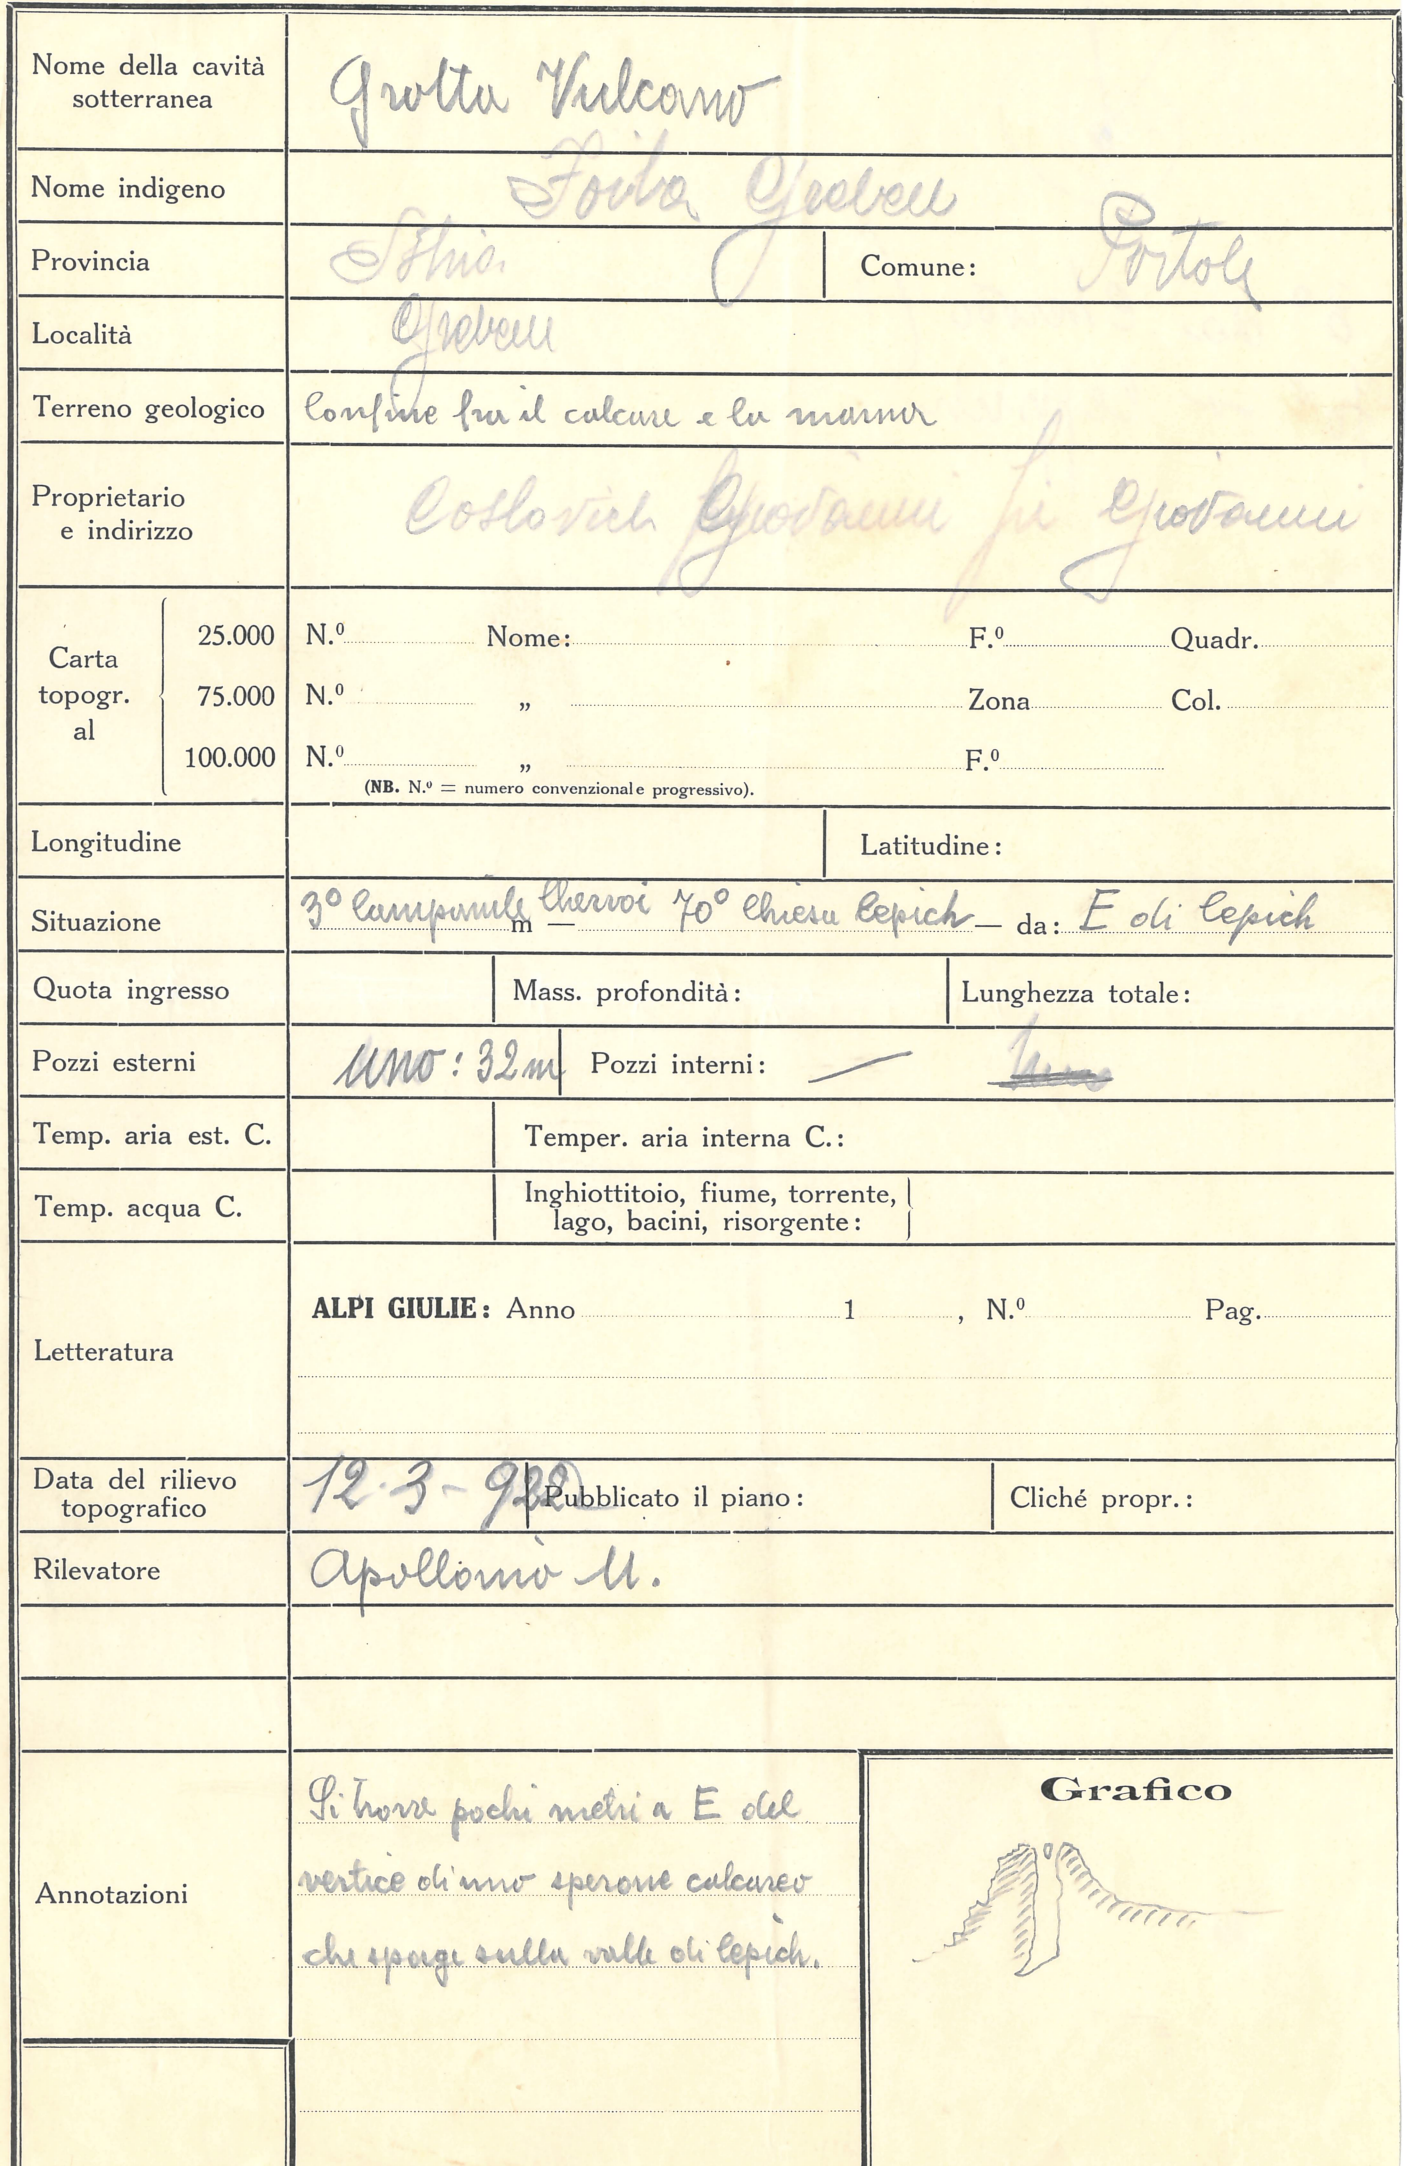 Nome della cavità
sotterranea
Grotta Vulcano
Nome indigeno
Foiba Greben
Provincia
Istria
Comune:
Portole
Località
Greben
Terreno geologico
Confine fra il calcare e la marna
Proprietario
e indirizzo
Coslovich Giovanni fu Giovanni
Carta
topogr.
al
25.000
N.º Nome: F.º Quadr.
75.000
N.º „ Zona Col.
100.000
N.º „ F.º
(NB. N.º = numero convenzionale progressivo).
Longitudine
Latitudine:
Situazione
3º Campanile Chervoi 70º Chiesa Cepich
m — — da: E di Cepich
Quota ingresso
Mass. profondità:
Lunghezza totale:
Pozzi esterni
uno: 32 m
Pozzi interni: —
Temp. aria est. C.
Temper. aria interna C.:
Temp. acqua C.
Inghiottitoio, fiume, torrente,
lago, bacini, risorgente:
Letteratura
ALPI GIULIE: Anno 1 , N.º Pag.
Data del rilievo
topografico
12-3-922
Pubblicato il piano:
Cliché propr.:
Rilevatore
Apollonio M.
Annotazioni
Si trova pochi metri a E del
vertice di uno sperone calcareo
che sporge sulla valle di Cepich.
Grafico